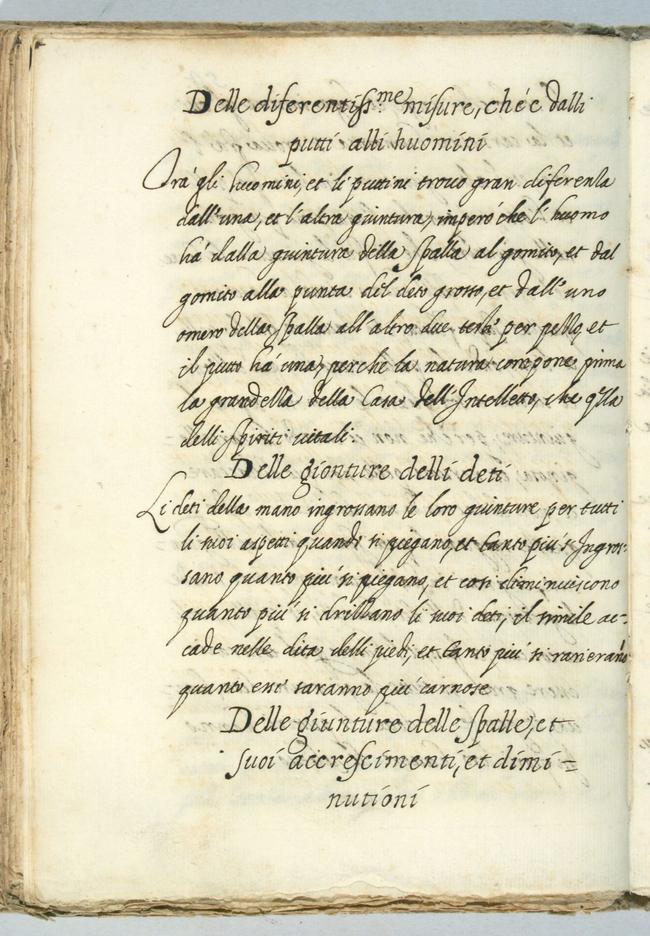 Delle diferentiss.me misure, ch'é e dalli
putti alli huomini
Trà gli huomini, et li puttini trouo gran diferenza
dall'una, et l'altra guintura, imperó che l'huomo
há dalla guintura della spalla al gomito, et dal
gomito alla punta del deto grosso, et dall'uno
omero della spalla all'altro due teste per pezzo, et
il putto há una, perche la natura compone prima
la grandezza della Casa dell'Intelletto, che qlla
delli spiriti uitali
Delle gionture delli deti
Li deti della mano ingrossano le loro guinture per tutti
li suoi aspetti quando si piegano, et tanto piu s'Ingros-
sano quanto piú si piegano, et cosi diminuiscono
quanto piú si drizzano li suoi deti, il simile ac-
cade nelle dita delli piedi, et tanto piú si varierano
quanto essi saranno piú carnose
Delle giunture delle spalle, et
suoi accrescimenti, et dimi=
nutioni